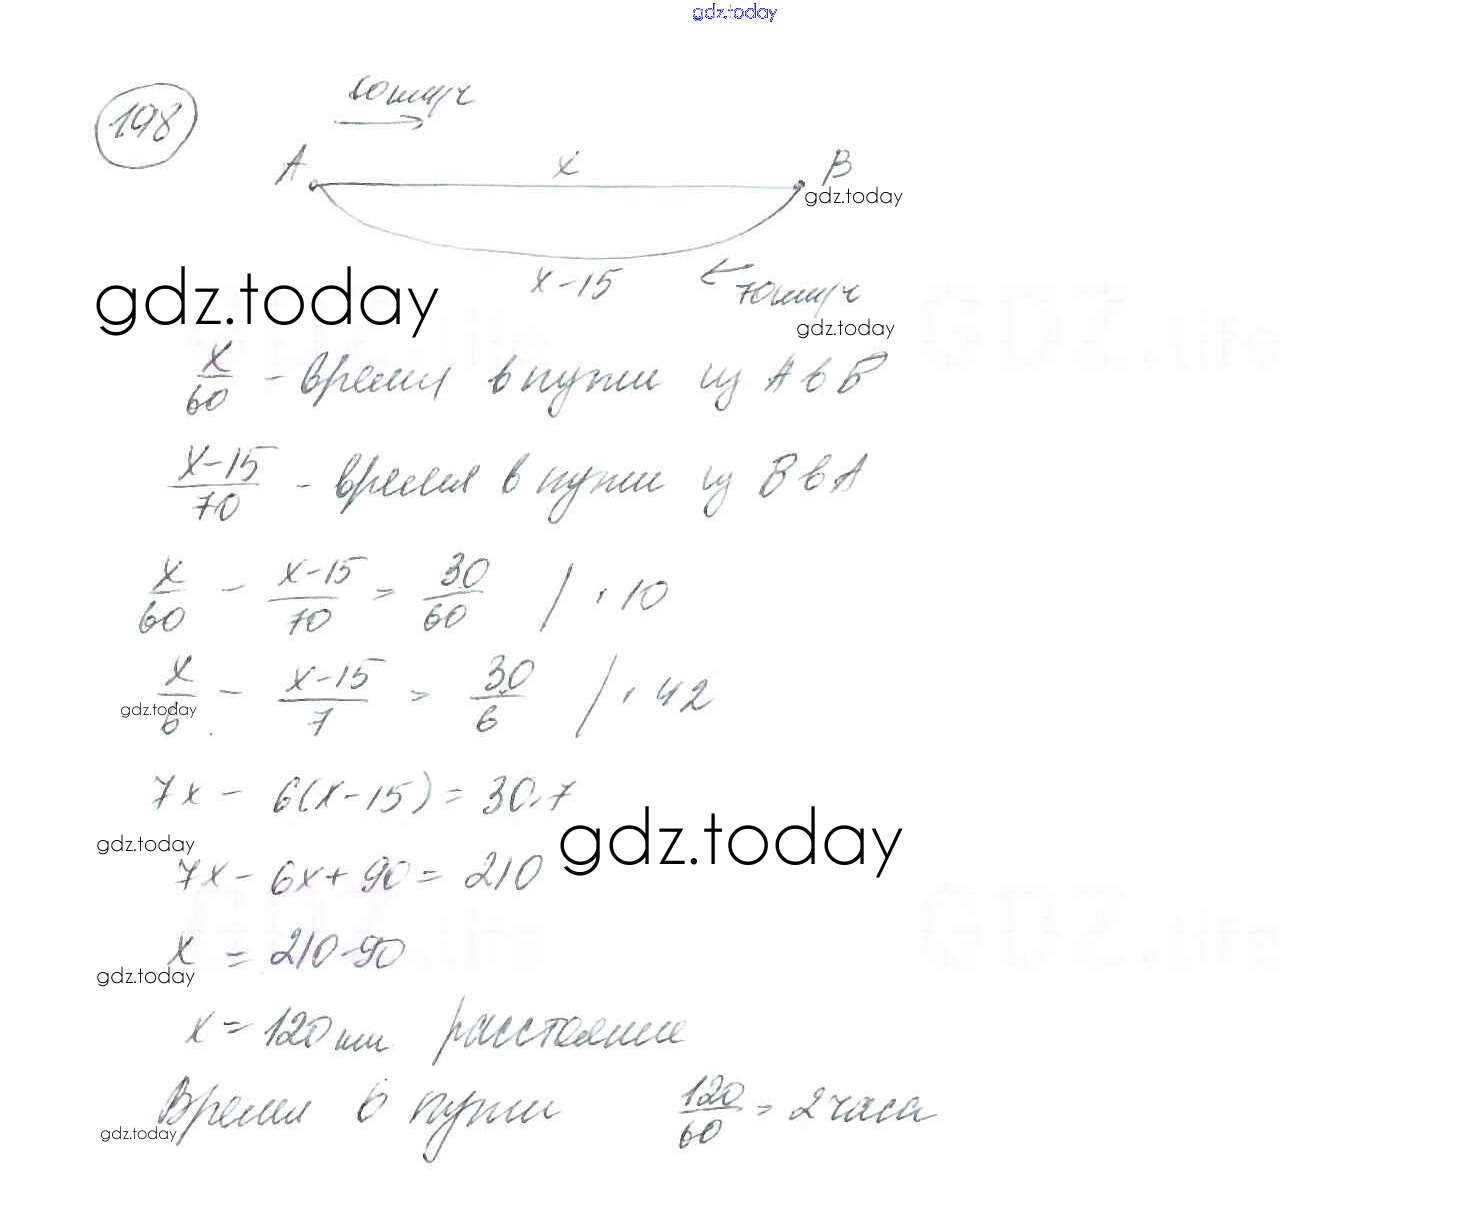 gdz.today
198
60 км/ч
A x B
gdz.today
x-15
70 км/ч
gdz.today
gdz.today
x/60 - время в пути из А в В
x-15/70 - время в пути из В в А
x/60 - x-15/70 = 30/60 / · 10
x/6 - x-15/7 = 30/6 / · 42
gdz.today
7x - 6(x-15) = 30·7
gdz.today
gdz.today
7x - 6x + 90 = 210
x = 210-90
gdz.today
x = 120 км расстояние
Время в пути 120/60 = 2 часа
gdz.today
GDZ.life
GDZ.life
GDZ.life